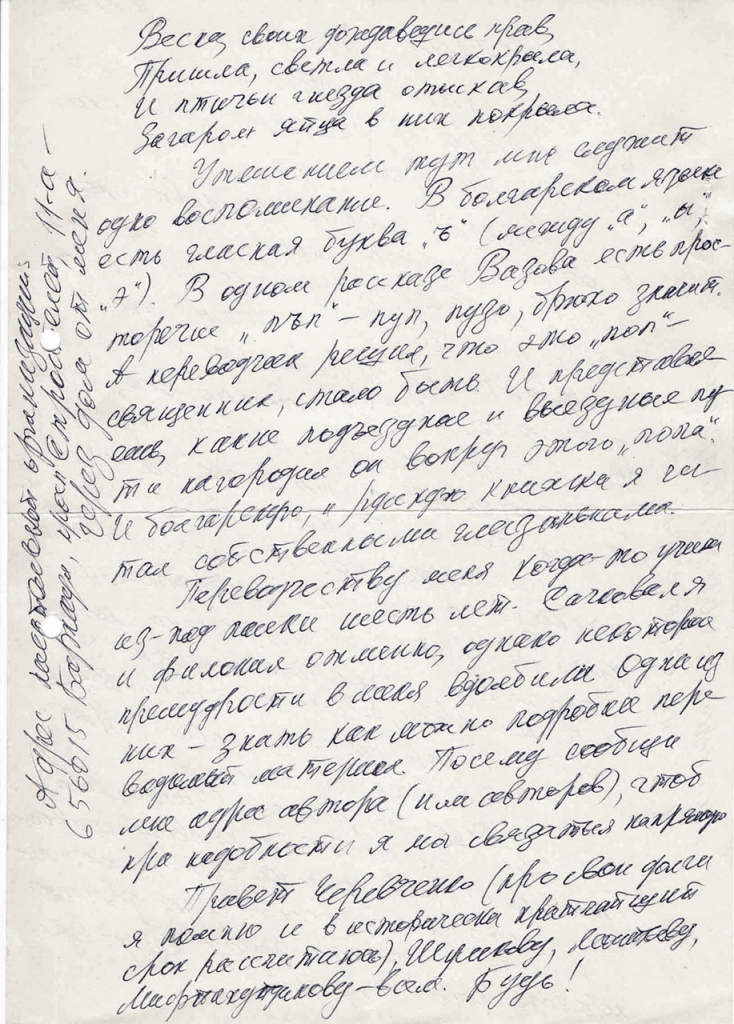 Весна, своих дождавшись прав,
Пришла, светла и легкокрыла,
И птичьи гнезда отыскав,
Загаром яйца в них покрыла.
Утешением тут мне служит
одно воспоминание. В болгарском языке
есть гласная буква „ъ" (между „а", „ы",
„э"). В одном рассказе Вазова есть прос-
торечие „пъп" – пуп, пузо, брюхо значит.
А переводчик решил, что это „поп" –
священник, стало быть. И представля-
ешь, какие подъездные и выездные пу-
ти нагородил он вокруг этого „попа".
И болгарскую, и русскую книжки я чи-
тал собственными глазыньками.
Переводчеству меня когда-то учили
из-под палки шесть лет. Сачковал я
и филонил отменно, однако некоторые
премудрости в меня вдолбили. Одна из
них – знать как можно подробнее пере-
водимый материал. Посему сообщи
мне адрес автора (или авторов), чтоб
при надобности я мог связаться напрямую
Привет Черевченко (про свои долги
я помню и в исторически кратчайший
срок рассчитаюсь),
– Вам. Будь!
Адрес
656015 Барнаул, 11-а –
через дом от меня.